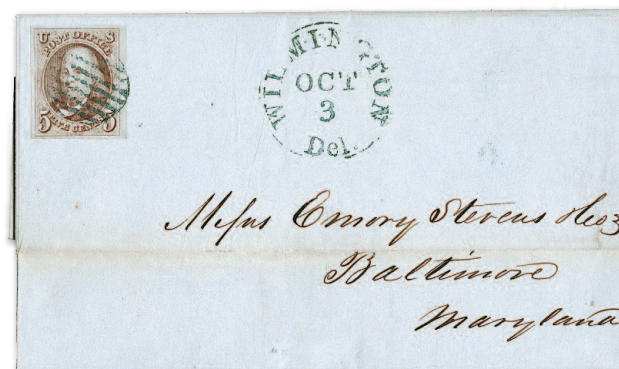 U S
POST OFFICE
5 FIVE CENTS 5
WILMINGTON
OCT
3
Del.
Messrs Emory Stevens
Baltimore
Maryland